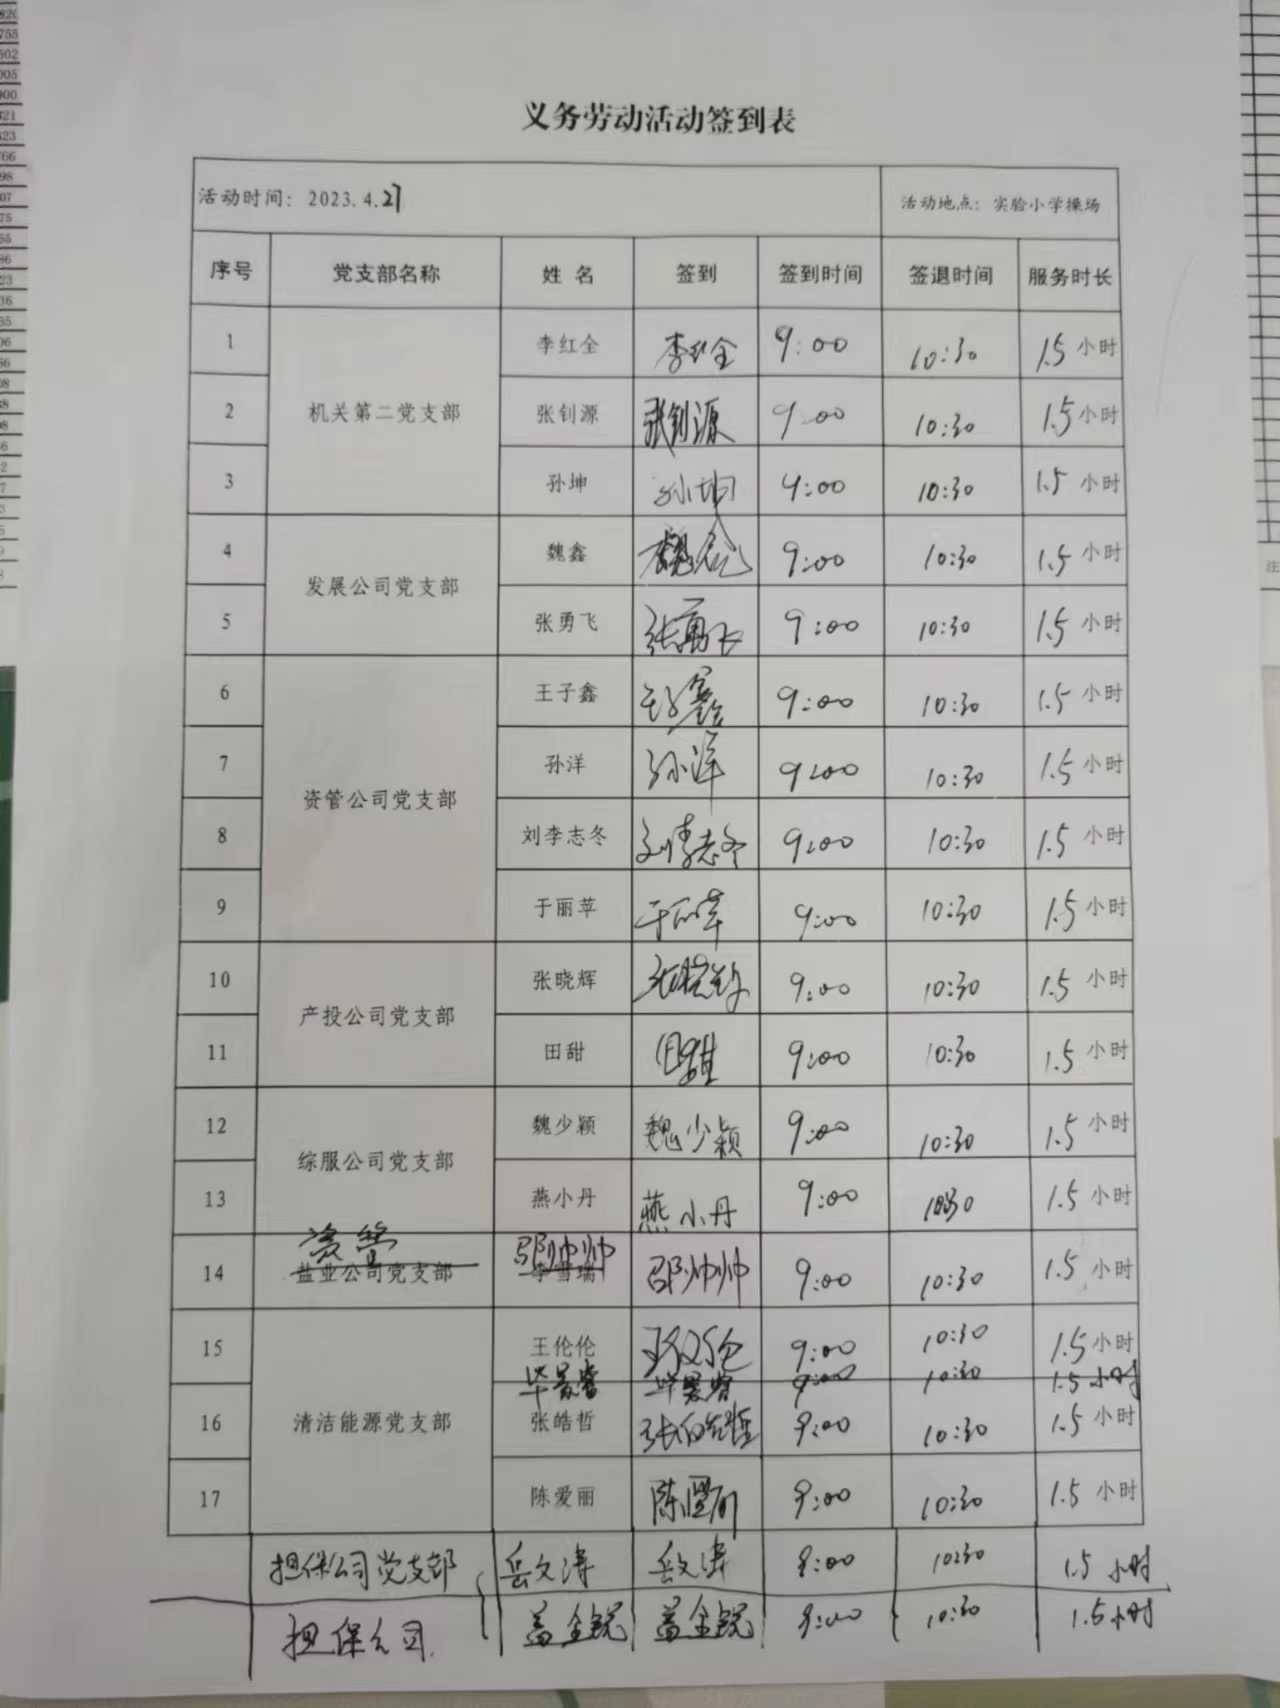 义务劳动活动签到表
活动时间：2023.4.21 活动地点：实验小学操场
序号 党支部名称 姓名 签到 签到时间 签退时间 服务时长
1 机关第二党支部 李红全 李红全 9:00 10:30 1.5小时
2 张钊源 张钊源 9:00 10:30 1.5小时
3 孙坤 孙坤 9:00 10:30 1.5小时
4 发展公司党支部 魏鑫 魏鑫 9:00 10:30 1.5小时
5 张勇飞 张勇飞 9:00 10:30 1.5小时
6 资管公司党支部 王子鑫 王子鑫 9:00 10:30 1.5小时
7 孙洋 孙洋 9:00 10:30 1.5小时
8 刘李志冬 刘李志冬 9:00 10:30 1.5小时
9 于丽苹 于丽苹 9:00 10:30 1.5小时
10 产投公司党支部 张晓辉 张晓辉 9:00 10:30 1.5小时
11 田甜 田甜 9:00 10:30 1.5小时
12 综服公司党支部 魏少颖 魏少颖 9:00 10:30 1.5小时
13 燕小丹 燕小丹 9:00 10:30 1.5小时
资管 邵帅帅
14 盐业公司党支部 李雪瑞 邵帅帅 9:00 10:30 1.5小时
15 清洁能源党支部 王伦伦 王伦伦 9:00 10:30 1.5小时
毕景睿 毕景睿 9:00 10:30 1.5小时
16 张皓哲 张皓哲 9:00 10:30 1.5小时
17 陈爱丽 陈爱丽 9:00 10:30 1.5小时
担保公司党支部 岳文涛 岳文涛 9:00 10:30 1.5小时
担保公司 盖金锐 盖金锐 9:00 10:30 1.5小时